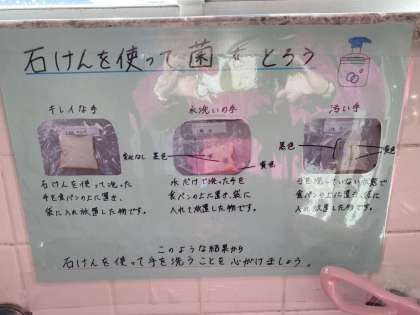 石けんを使って菌をとろう
キレイな手
水洗いの手
汚い手
変化なし
黒色
黄色
黒色
黄色
石けんを使って洗った
手を食パンの上に置き、
袋に入れ放置した物です。
水だけで洗った手を
食パンの上に置き、袋に
入れて放置した物です。
手を洗っていない状態で
食パンの上に置き、袋に
入れ放置した物です。
このような結果から
石けんを使って手を洗うことを心がけましょう。